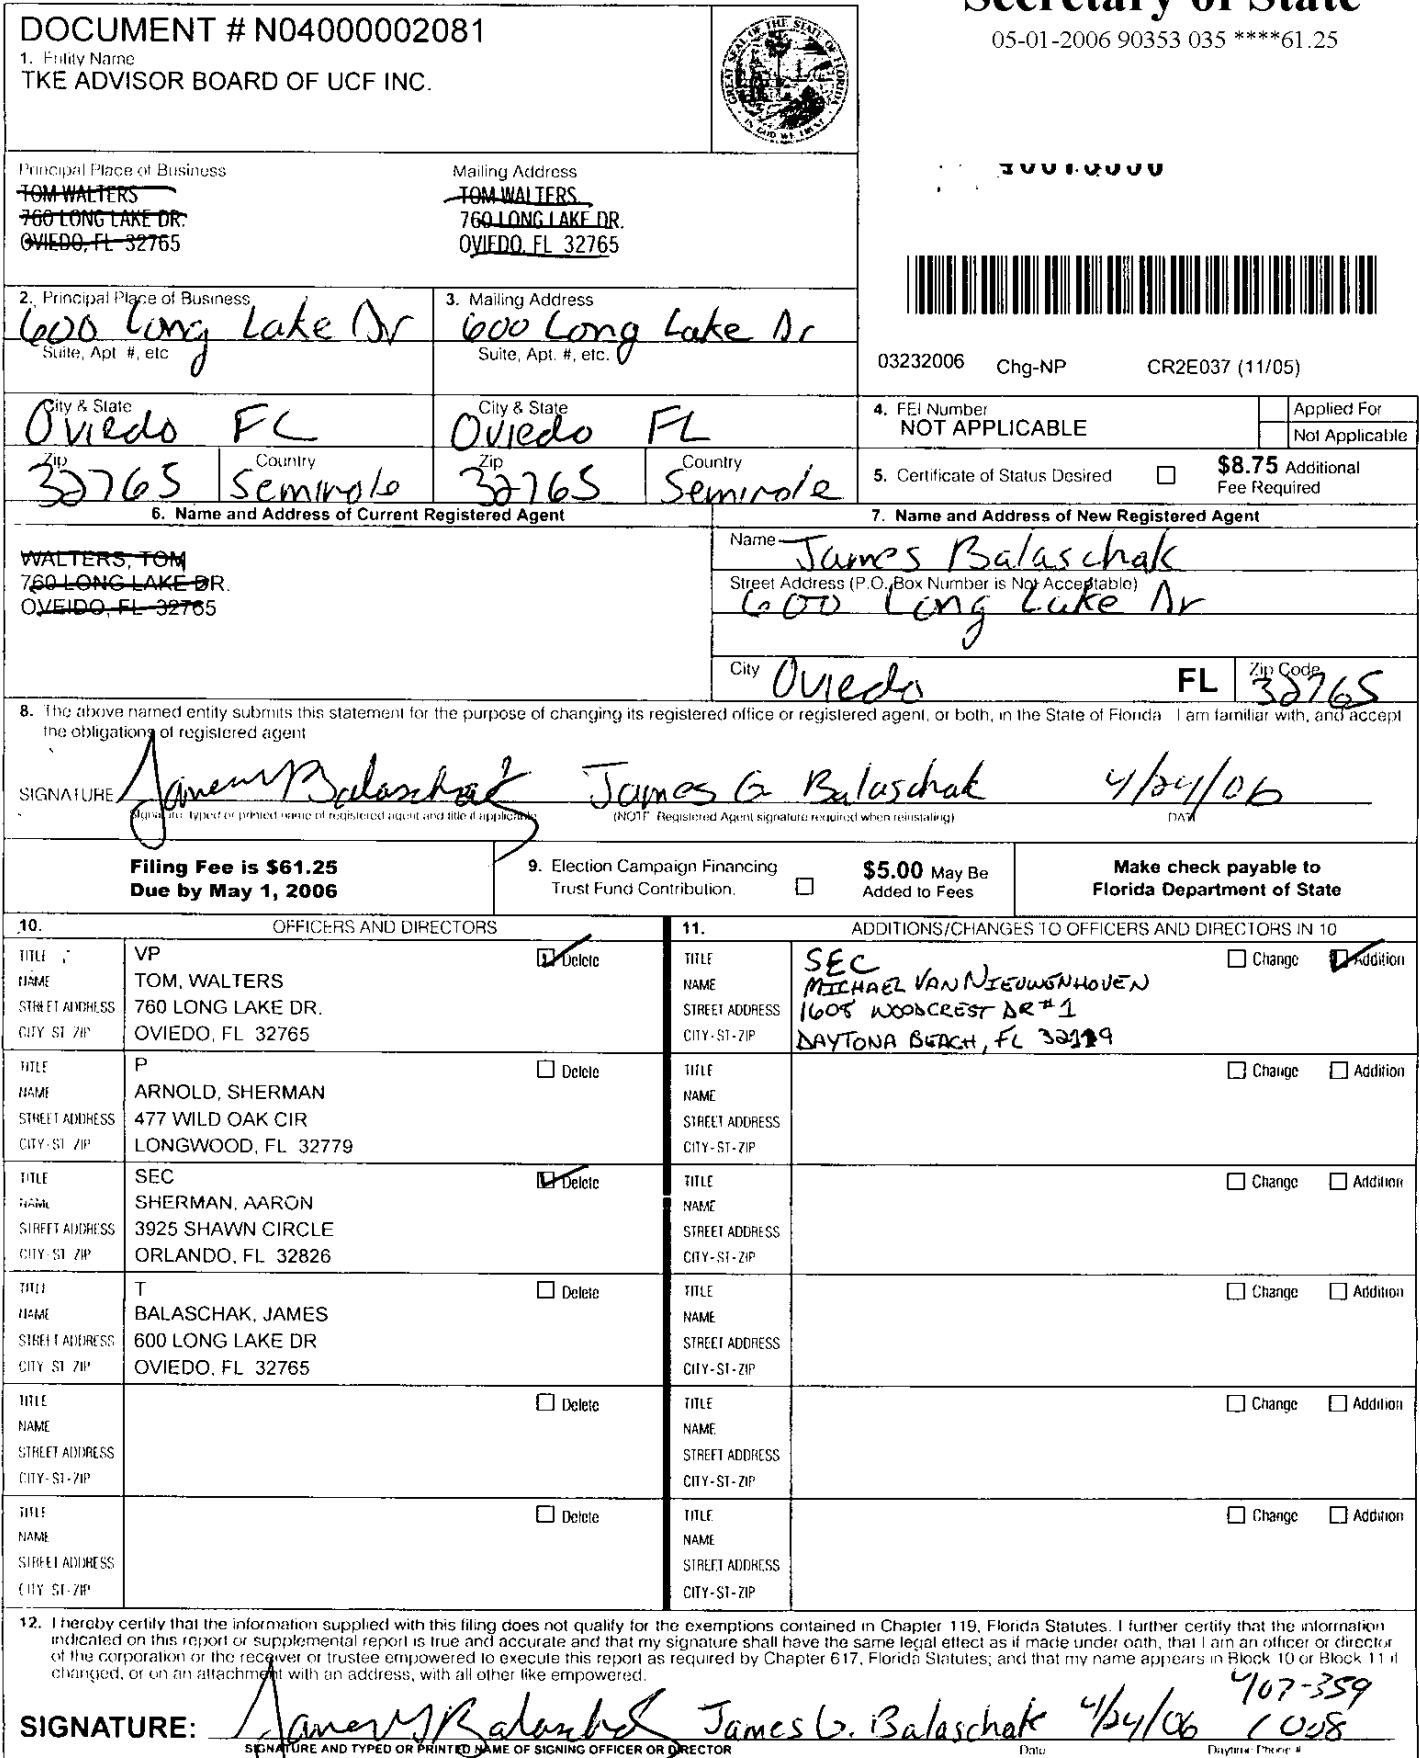 Secretary of State
05-01-2006 90353 035 ****61.25
DOCUMENT # N04000002081
1. Entity Name
TKE ADVISOR BOARD OF UCF INC.
GREAT SEAL OF THE STATE OF FLORIDA
IN GOD WE TRUST
Principal Place of Business
TOM WALTERS
760 LONG LAKE DR.
OVIEDO, FL 32765
Mailing Address
TOM WALTERS
760 LONG LAKE DR.
OVIEDO, FL 32765
2. Principal Place of Business
600 Long Lake Dr
Suite, Apt #, etc
3. Mailing Address
600 Long Lake Dr
Suite, Apt. #, etc.
03232006 Chg-NP CR2E037 (11/05)
City & State
Oviedo FL
City & State
Oviedo FL
Zip
32765
Country
Seminole
Zip
32765
Country
Seminole
4. FEI Number
NOT APPLICABLE
Applied For
Not Applicable
5. Certificate of Status Desired
$8.75 Additional
Fee Required
6. Name and Address of Current Registered Agent
WALTERS, TOM
760 LONG LAKE DR.
OVEIDO, FL 32765
7. Name and Address of New Registered Agent
Name James Balaschak
Street Address (P.O. Box Number is Not Acceptable)
600 Long Lake Dr
City Oviedo FL Zip Code 32765
8. The above named entity submits this statement for the purpose of changing its registered office or registered agent, or both, in the State of Florida I am familiar with, and accept
the obligations of registered agent
SIGNATURE James Balaschak James G. Balaschak 4/24/06
Signature, typed or printed name of registered agent and title if applicable
(NOTE Registered Agent signature required when reinstating)
DATE
Filing Fee is $61.25
Due by May 1, 2006
9. Election Campaign Financing
Trust Fund Contribution.
$5.00 May Be
Added to Fees
Make check payable to
Florida Department of State
10. OFFICERS AND DIRECTORS
TITLE VP Delete
NAME TOM, WALTERS
STREET ADDRESS 760 LONG LAKE DR.
CITY ST ZIP OVIEDO, FL 32765
TITLE P Delete
NAME ARNOLD, SHERMAN
STREET ADDRESS 477 WILD OAK CIR
CITY-ST ZIP LONGWOOD, FL 32779
TITLE SEC Delete
NAME SHERMAN, AARON
STREET ADDRESS 3925 SHAWN CIRCLE
CITY-ST ZIP ORLANDO, FL 32826
TITLE T Delete
NAME BALASCHAK, JAMES
STREET ADDRESS 600 LONG LAKE DR
CITY ST ZIP OVIEDO, FL 32765
TITLE Delete
NAME
STREET ADDRESS
CITY-ST-ZIP
TITLE Delete
NAME
STREET ADDRESS
CITY ST-ZIP
11. ADDITIONS/CHANGES TO OFFICERS AND DIRECTORS IN 10
TITLE SEC Change Addition
NAME MICHAEL VAN NIEUWENHOVEN
STREET ADDRESS 1608 WOODCREST DR #1
CITY-ST-ZIP DAYTONA BEACH, FL 32119
TITLE Change Addition
NAME
STREET ADDRESS
CITY-ST-ZIP
TITLE Change Addition
NAME
STREET ADDRESS
CITY-ST-ZIP
TITLE Change Addition
NAME
STREET ADDRESS
CITY-ST-ZIP
TITLE Change Addition
NAME
STREET ADDRESS
CITY-ST-ZIP
TITLE Change Addition
NAME
STREET ADDRESS
CITY-ST-ZIP
12. I hereby certify that the information supplied with this filing does not qualify for the exemptions contained in Chapter 119, Florida Statutes. I further certify that the information
indicated on this report or supplemental report is true and accurate and that my signature shall have the same legal effect as if made under oath, that I am an officer or director
of the corporation or the receiver or trustee empowered to execute this report as required by Chapter 617, Florida Statutes; and that my name appears in Block 10 or Block 11 if
changed, or on an attachment with an address, with all other like empowered.
407-359
SIGNATURE: James Balaschak James G. Balaschak 4/24/06 1008
SIGNATURE AND TYPED OR PRINTED NAME OF SIGNING OFFICER OR DIRECTOR
Date
Daytime Phone #